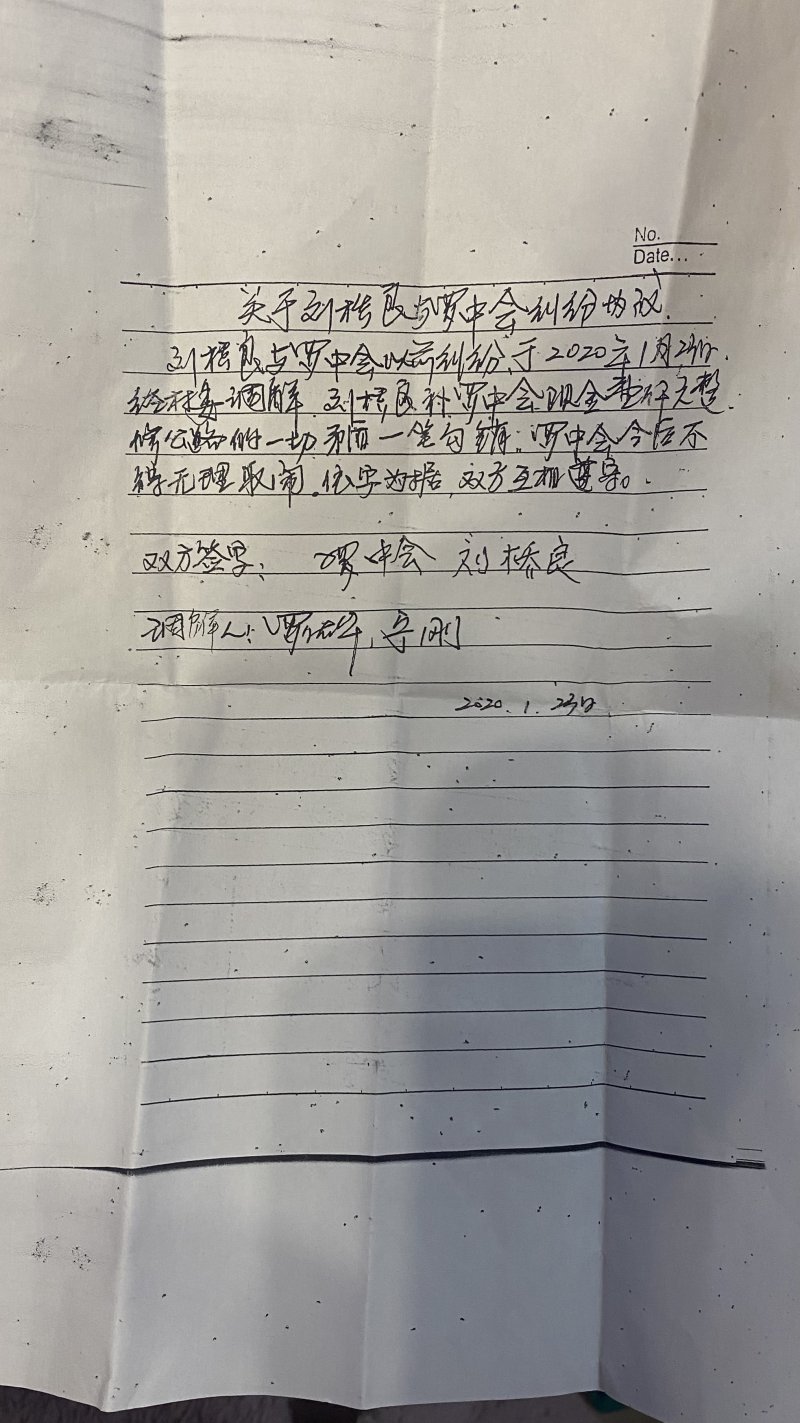 No.
Date...
关于刘桥良与罗中会纠纷协议.
刘桥良与罗中会以前纠纷,于2020年1月23日.
经村委调解.刘桥良补罗中会现金壹仟元整.
修公路的一切矛盾一笔勾销.罗中会今后不
得无理取闹.依字为据.双方互相遵守。
双方签字: 罗中会 刘桥良
调解人: 罗
2020.1.23日